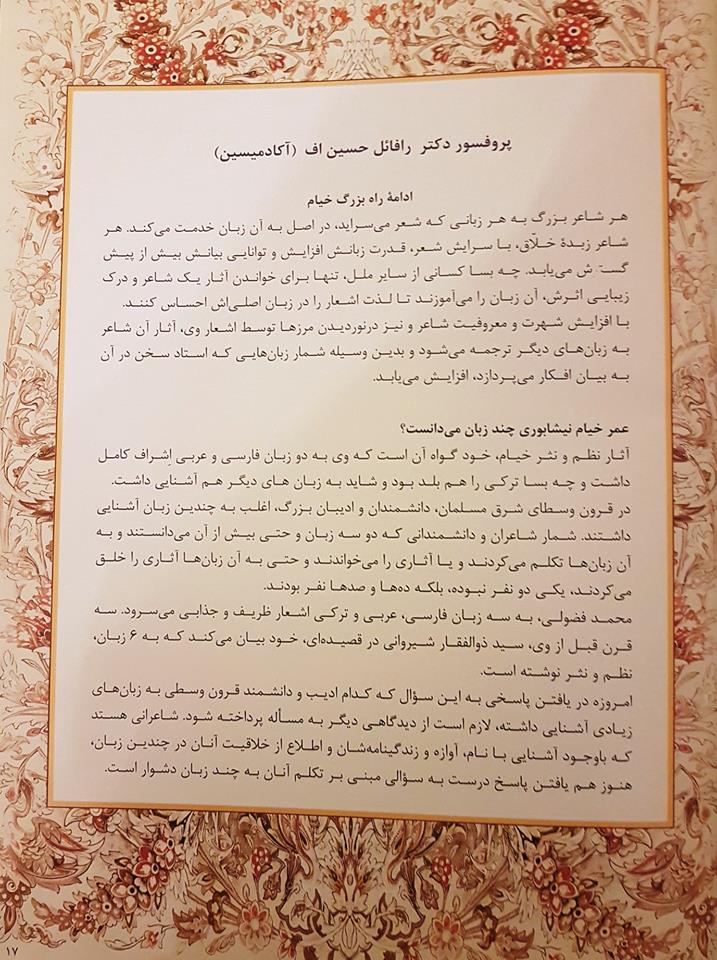 پروفسور دکتر رافائل حسین اف (آکادمیسین)
ادامهٔ راه بزرگ خیام
هر شاعر بزرگ به هر زبانی که شعر می‌سراید، در اصل به آن زبان خدمت می‌کند. هر
شاعر زبدهٔ خلّاق، با سرایش شعر، قدرت زبانش افزایش و توانایی بیانش بیش از پیش
گسترش می‌یابد. چه بسا کسانی از سایر ملل، تنها برای خواندن آثار یک شاعر و درک
زیبایی اثرش، آن زبان را می‌آموزند تا لذت اشعار را در زبان اصلی‌اش احساس کنند.
با افزایش شهرت و معروفیت شاعر و نیز درنوردیدن مرزها توسط اشعار وی، آثار آن شاعر
به زبان‌های دیگر ترجمه می‌شود و بدین وسیله شمار زبان‌هایی که استاد سخن در آن
به بیان افکار می‌پردازد، افزایش می‌یابد.
عمر خیام نیشابوری چند زبان می‌دانست؟
آثار نظم و نثر خیام، خود گواه آن است که وی به دو زبان فارسی و عربی اِشراف کامل
داشت و چه بسا ترکی را هم بلد بود و شاید به زبان های دیگر هم آشنایی داشت.
در قرون وسطای شرق مسلمان، دانشمندان و ادیبان بزرگ، اغلب به چندین زبان آشنایی
داشتند. شمار شاعران و دانشمندانی که دو سه زبان و حتی بیش از آن می‌دانستند و به
آن زبان‌ها تکلم می‌کردند و یا آثاری را می‌خواندند و حتی به آن زبان‌ها آثاری را خلق
می‌کردند، یکی دو نفر نبوده، بلکه ده‌ها و صدها نفر بودند.
محمد فضولی، به سه زبان فارسی، عربی و ترکی اشعار ظریف و جذابی می‌سرود. سه
قرن قبل از وی، سید ذوالفقار شیروانی در قصیده‌ای، خود بیان می‌کند که به ۶ زبان،
نظم و نثر نوشته است.
امروزه در یافتن پاسخی به این سؤال که کدام ادیب و دانشمند قرون وسطی به زبان‌های
زیادی آشنایی داشته، لازم است از دیدگاهی دیگر به مسأله پرداخته شود. شاعرانی هستد
که باوجود آشنایی با نام، آوازه و زندگینامه‌شان و اطلاع از خلاقیت آنان در چندین زبان،
هنوز هم یافتن پاسخ درست به سؤالی مبنی بر تکلم آنان به چند زبان دشوار است.
۱۷